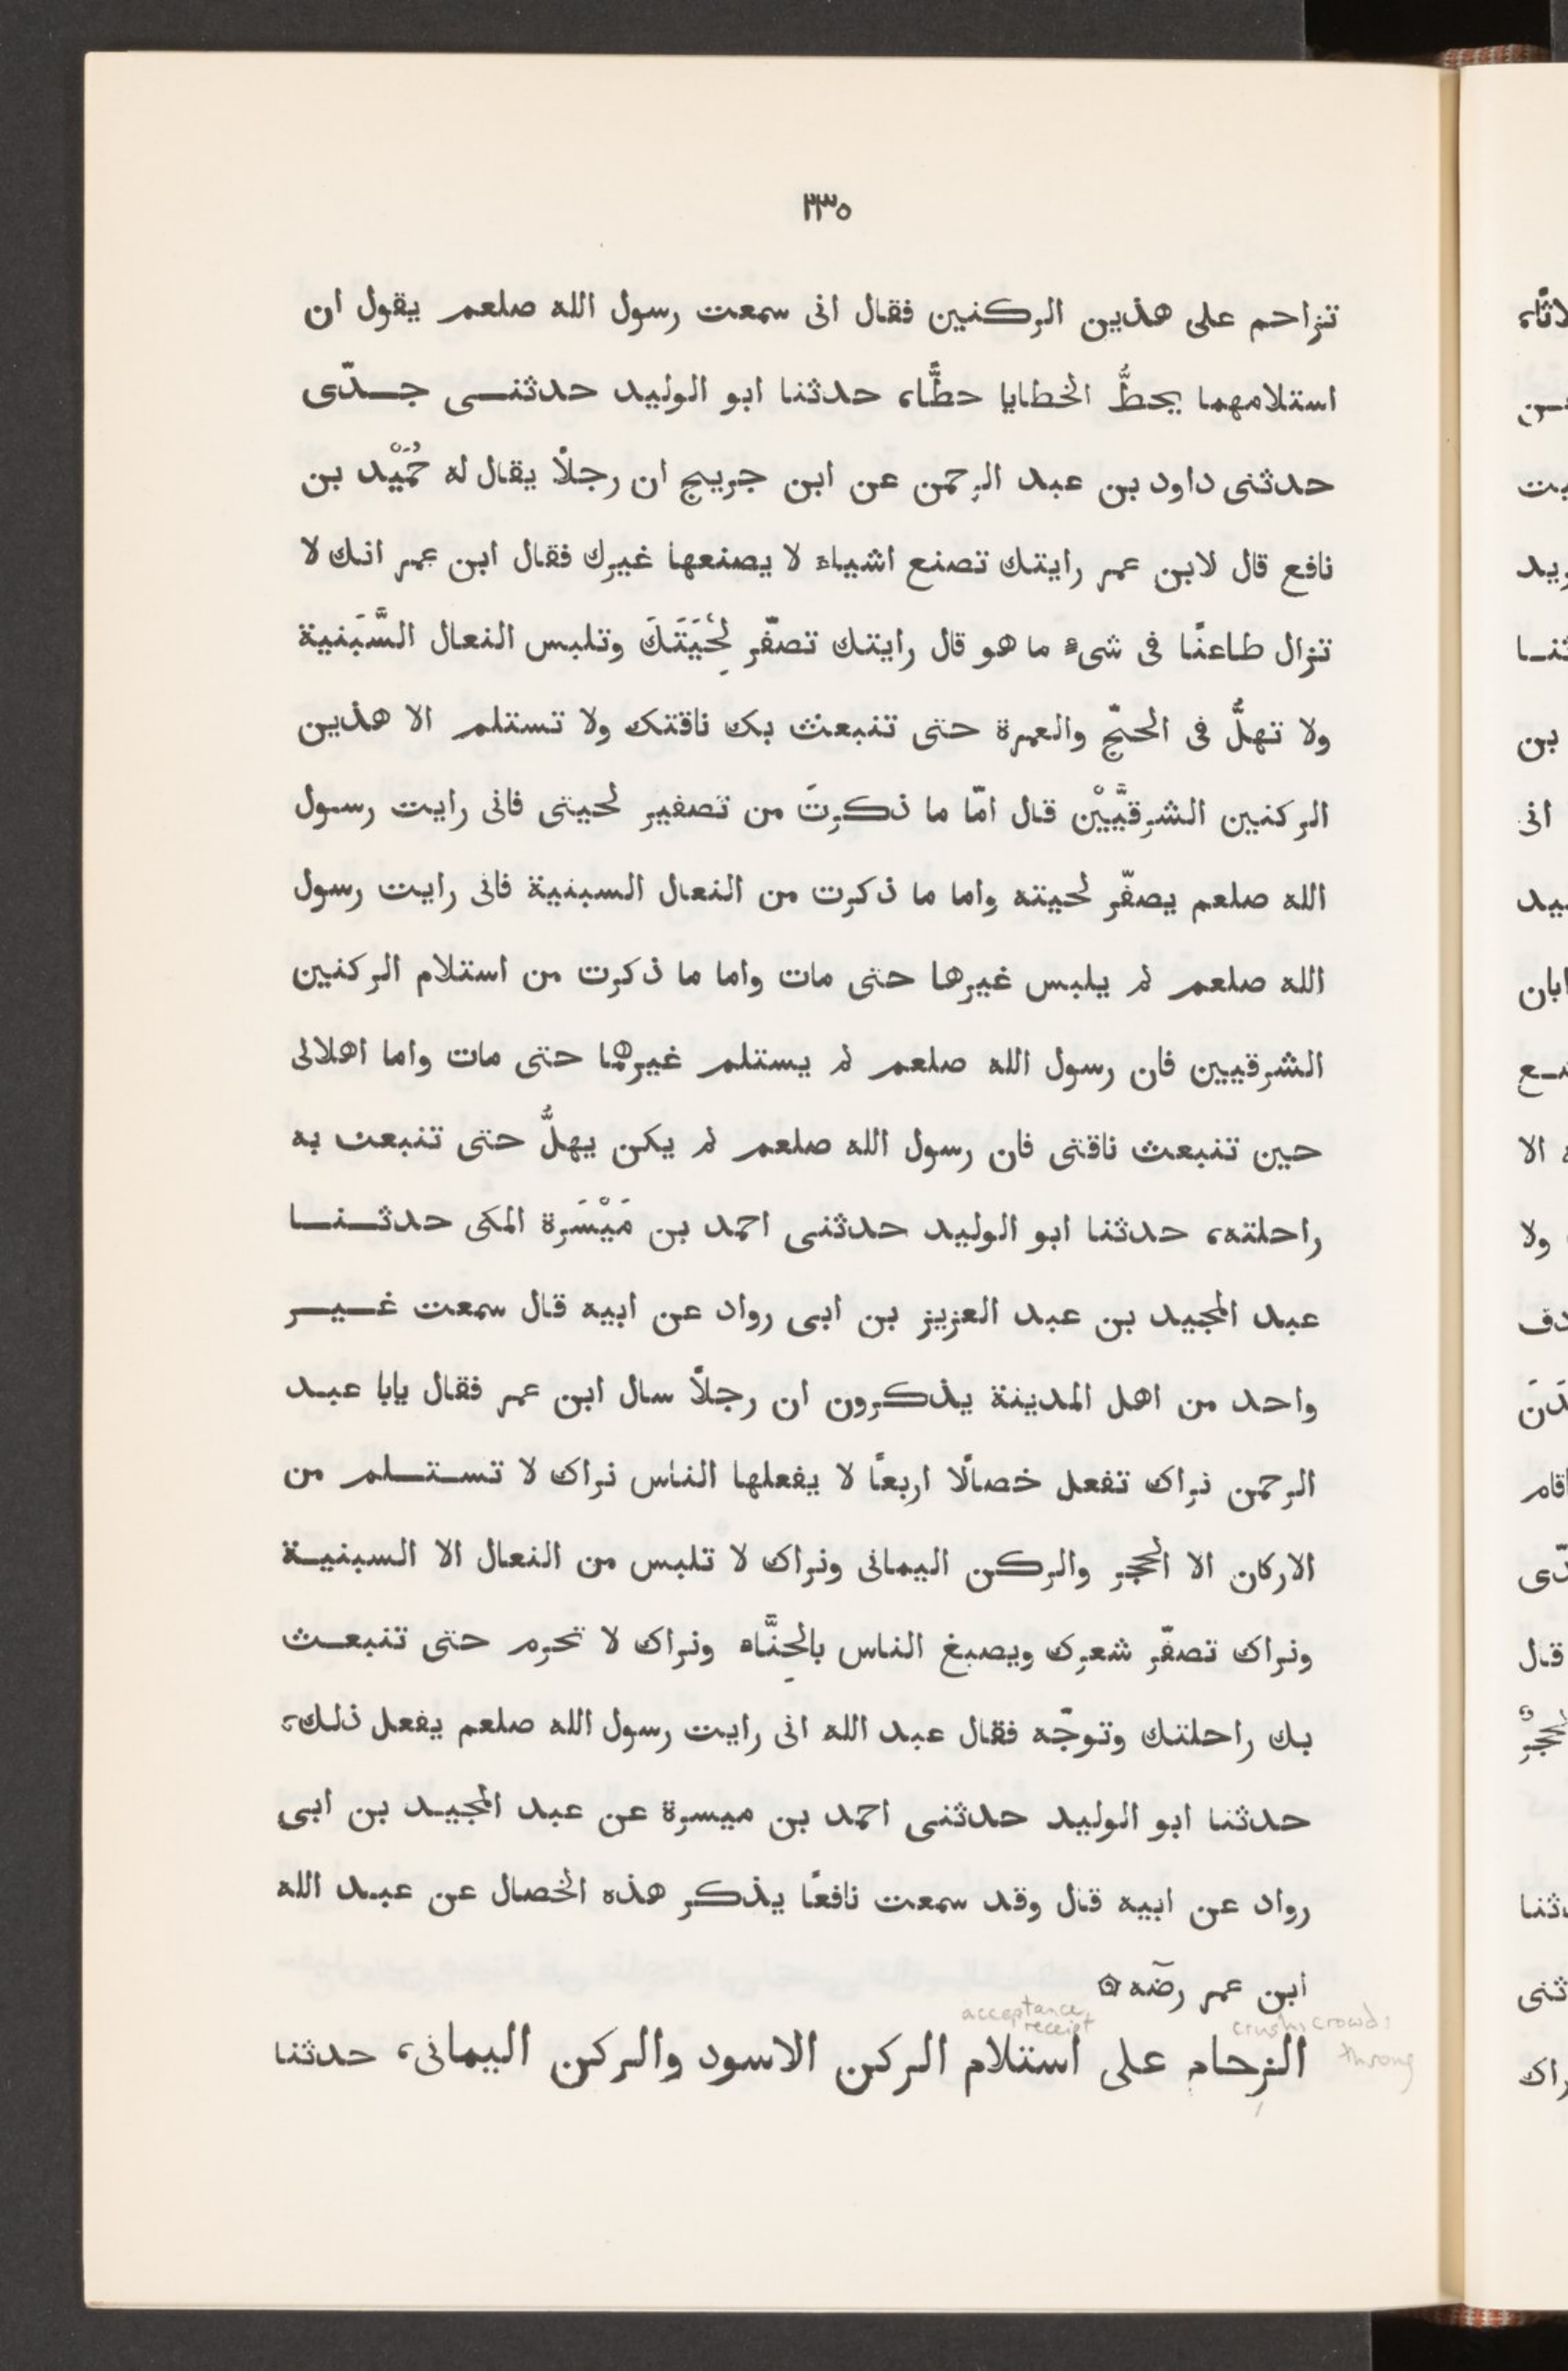 ٢٣٥
تزاحم على هذين الركنين فقال انى سمعت رسول الله صلعم يقول ان
استلامهما يحطُّ الخطايا حطًّا، حدثنا ابو الوليد حدثنــى جــدّى
حدثنى داود بن عبد الرحمن عن ابن جريج ان رجلًا يقال له حُمَيْد بن
نافع قال لابن عمر رايتك تصنع اشياء لا يصنعها غيرك فقال ابن عمر انك لا
تزال طاعنًا فى شىء ما هو قال رايتك تصفّر لِحْيَتَكَ وتلبس النعال السَّبَنية
ولا تهلُّ فى الحجّ والعمرة حتى تنبعث بك ناقتك ولا تستلم الا هذين
الركنين الشرقيَّيْن قال امّا ما ذكرتَ من تصفير لحيتى فانى رايت رسول
الله صلعم يصفّر لحيته واما ما ذكرت من النعال السبنية فانى رايت رسول
الله صلعم لم يلبس غيرها حتى مات واما ما ذكرت من استلام الركنين
الشرقيين فان رسول الله صلعم لم يستلم غيرهما حتى مات واما اهلالى
حين تنبعث ناقتى فان رسول الله صلعم لم يكن يهلُّ حتى تنبعث به
راحلته، حدثنا ابو الوليد حدثنى احمد بن مَيْسَرة المكى حدثــنــا
عبد المجيد بن عبد العزيز بن ابى رواد عن ابيه قال سمعت غــيــر
واحد من اهل المدينة يذكرون ان رجلًا سال ابن عمر فقال يابا عبـد
الرحمن نراك تفعل خصالًا اربعًا لا يفعلها الناس نراك لا تســتــلم من
الاركان الا الحجر والركن اليمانى ونراك لا تلبس من النعال الا السبنيـة
ونراك تصفّر شعرك ويصبغ الناس بالحِنَّاء ونراك لا تحرم حتى تنبعـث
بك راحلتك وتوجّه فقال عبد الله انى رايت رسول الله صلعم يفعل ذلك،
حدثنا ابو الوليد حدثنى احمد بن ميسرة عن عبد المجيـد بن ابى
رواد عن ابيه قال وقد سمعت نافعًا يذكر هذه الخصال عن عبـد الله
ابن عمر رضّه ۞
acceptance, receipt
crush, crowd, throng
الزحام على استلام الركن الاسود والركن اليمانى، حدثنا